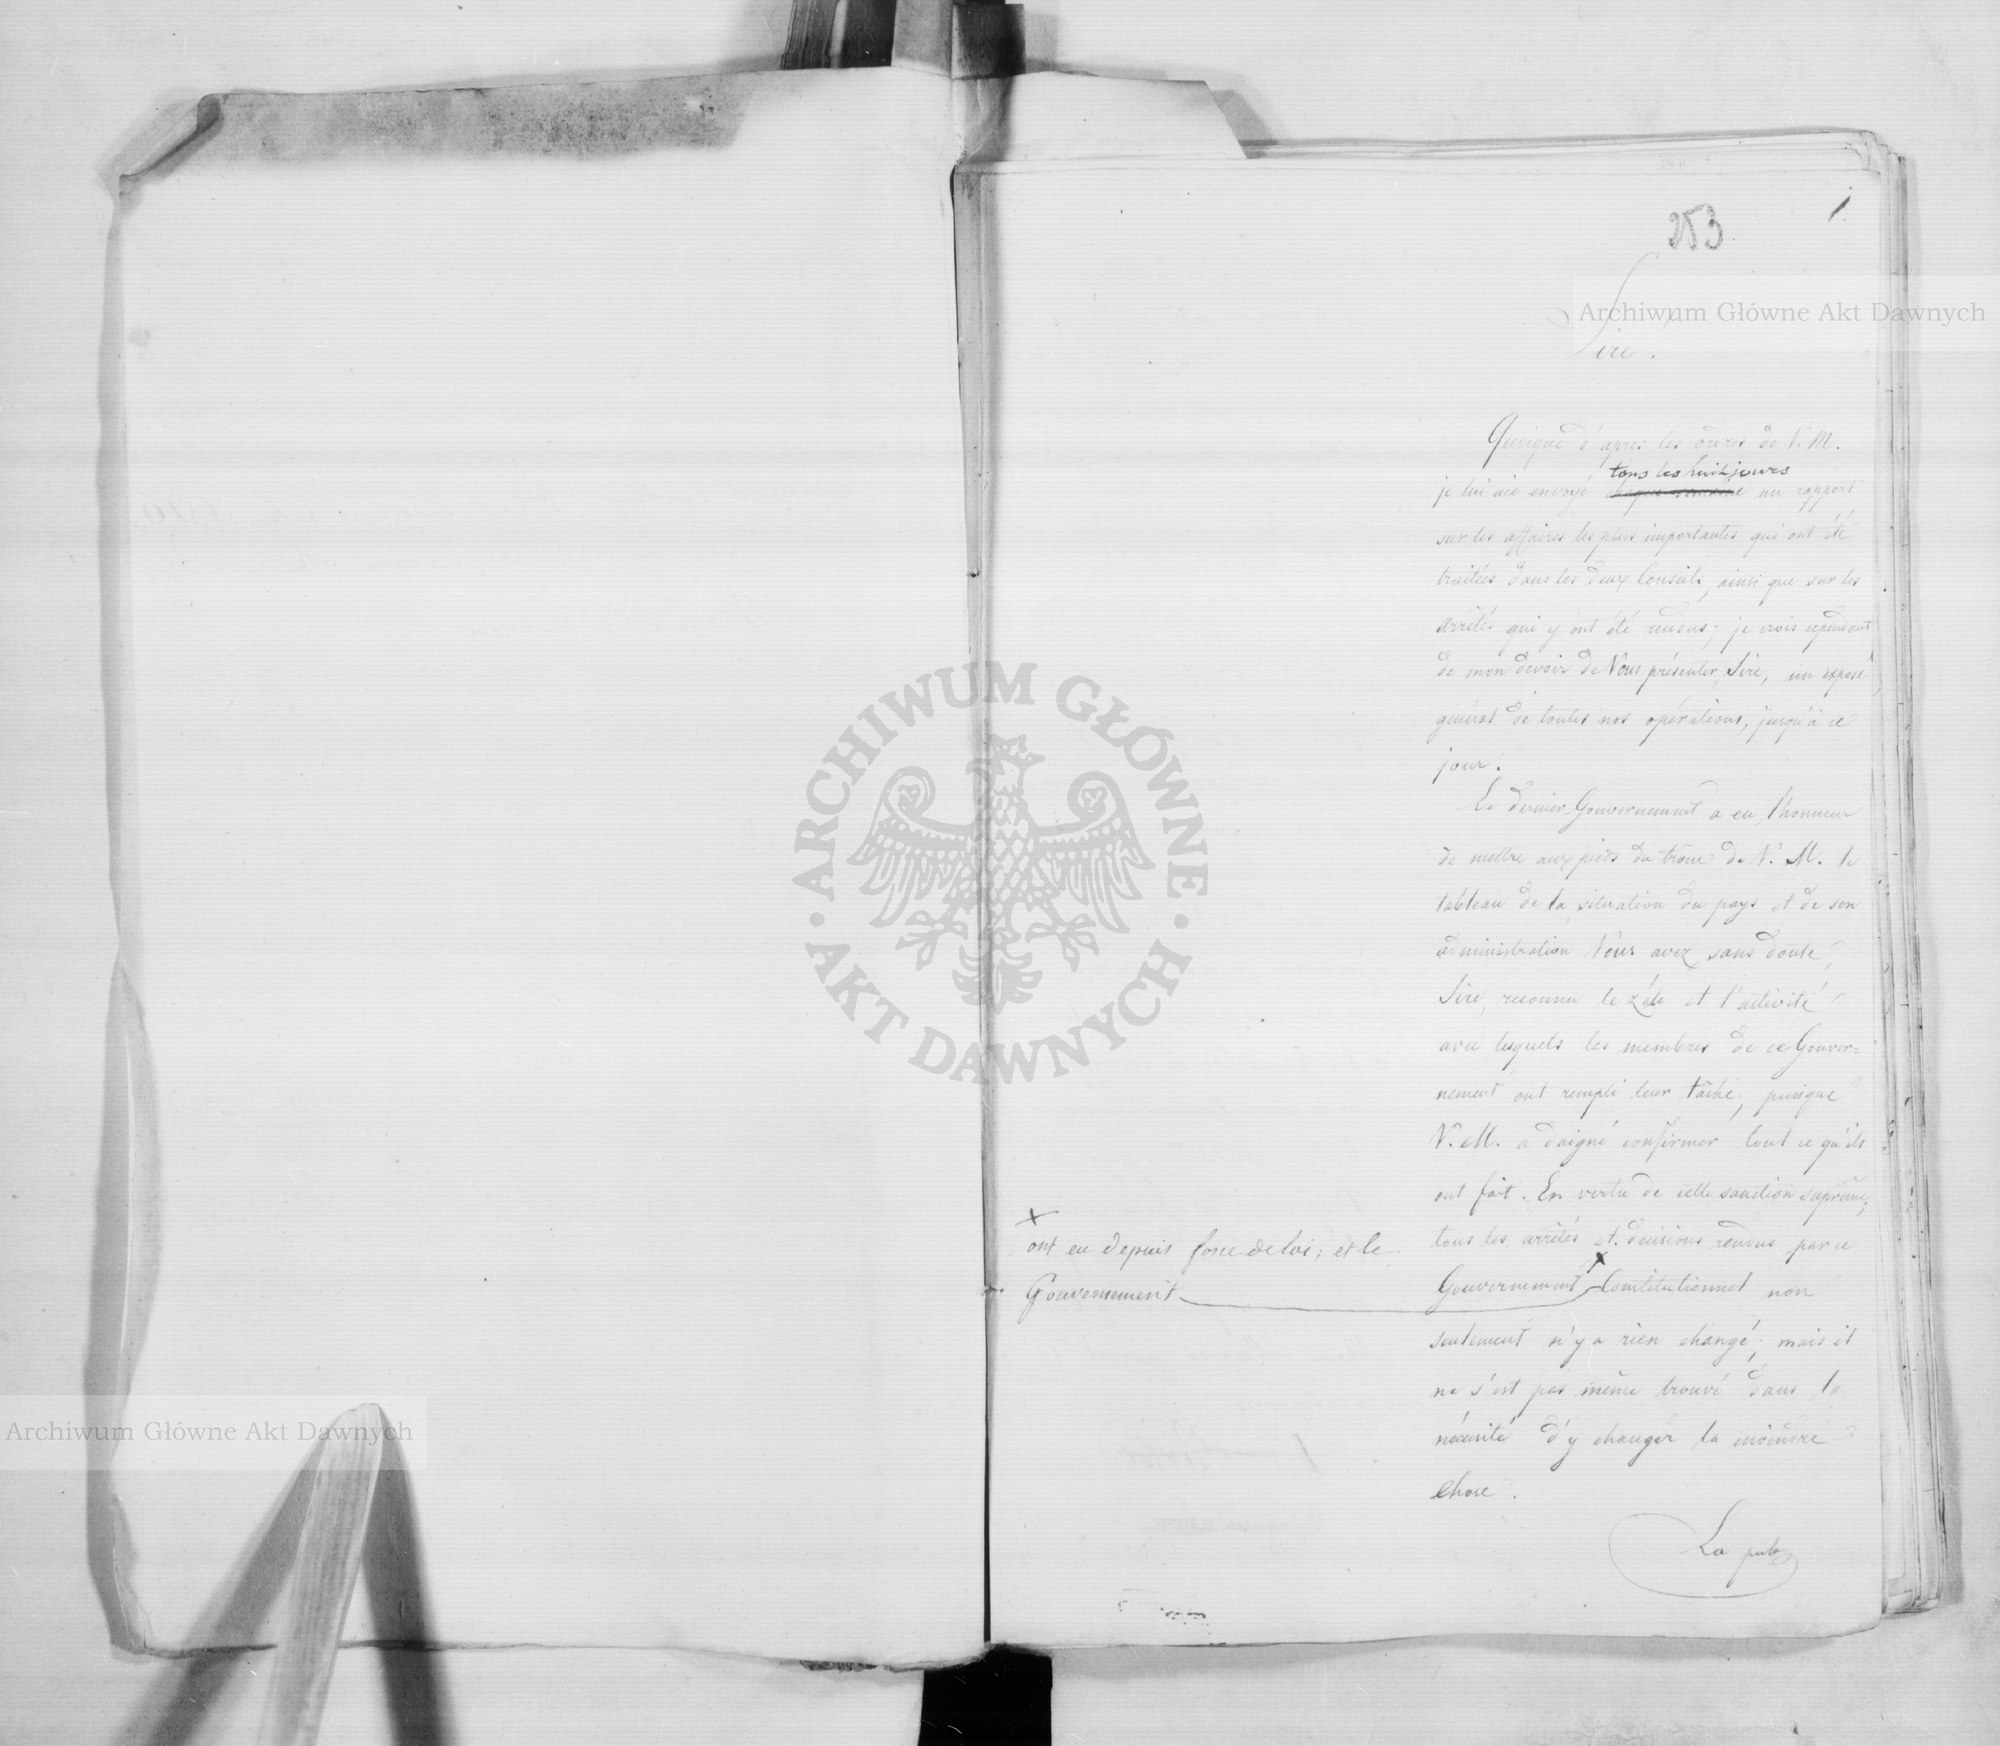 253
1.
Sire.
Quoique d'apres les ordres de V. M.
tous les huit jours
je lui aie envoyé chaque semaine un rapport
sur les affaires les plus importantes qui ont été
traitées dans les deux Conseils, ainsi que sur les
arrêtés qui y ont été rendus; je crois cependant
de mon devoir de Vous présenter, Sire, un exposé
général de toutes nos opérations, jusqu'à ce
jour.
Le dernier Gouvernement a eu l'honneur
de mettre aux pieds du trône de V. M. le
tableau de la situation du pays et de son
administration Vous avez sans doute,
Sire, reconnu le zéle et l'activité
avec lesquels les membres de ce Gouver=
nement ont rempli leur tâche, puisque
V. M. a daigné confirmer tout ce qu'ils
ont fait. En vertu de cette sanction suprême,
tous les arrêtés et decisions rendus par ce
Gouvernement x Constitutionnel non
seulement n'y a rien changé; mais il
ne s'est pas même trouvé dans la
nécessité d'y changer la moindre
chose.
La pub
x
ont eu depuis force de loi; et le
Gouvernement
Archiwum Główne Akt Dawnych
ARCHIWUM GŁÓWNE · AKT DAWNYCH ·
Archiwum Główne Akt Dawnych